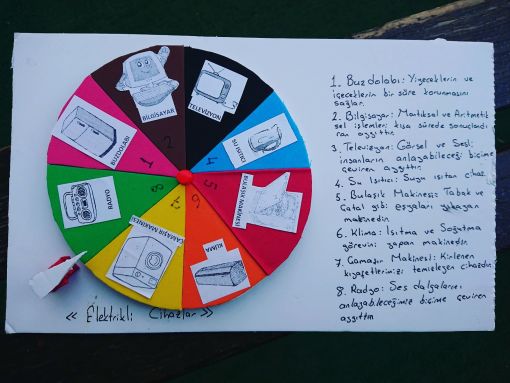 BUZDOLABI
BİLGİSAYAR
TELEVİZYON
SU ISITICI
BULAŞIK MAKİNESİ
KLİMA
ÇAMAŞIR MAKİNESİ
RADYO
1
2
4
5
6
7
8
<< Elektrikli Cihazlar >>
1. Buzdolabı: Yiyeceklerin ve
içeceklerin bir süre korunmasını
sağlar.
2. Bilgisayar: Mantıksal ve Aritmetik
sel işlemleri kısa sürede sonuçlandı
ran aygıttır.
3. Televizyon: Görsel ve Sesi;
insanların anlayabileceği biçime
çeviren aygıttır
4. Su Isıtıcı: Suyu ısıtan cihaz
5. Bulaşık Makinesi: Tabak ve
Çatal gibi eşyaları yıkayan
makinedir
6. Klima: Isıtma ve Soğutma
görevini yapan makinedir
7. Çamaşır Makinesi: Kirlenen
kıyafetlerimizi temizleyen cihazdır.
8. Radyo: Ses dalgalarını
anlayabileceğimiz biçime çeviren
aygıttır